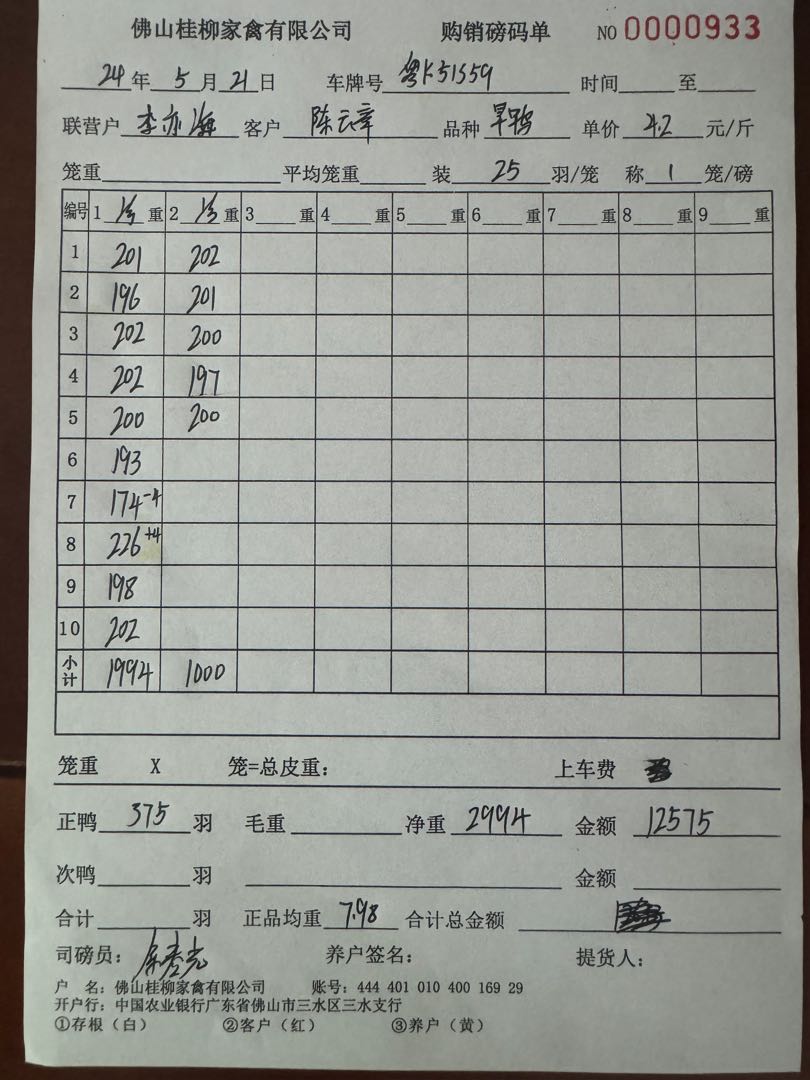 佛山桂柳家禽有限公司 购销磅码单 NO 0000933
24年 5月21日 车牌号 粤K51S59 时间 至
联营户 李亦海 客户 陈云章 品种 旱鸭 单价 4.2 元/斤
笼重 平均笼重 装 25 羽/笼 称 1 笼/磅
编号 1 重 2 重 3 重 4 重 5 重 6 重 7 重 8 重 9 重
1 201 202
2 196 201
3 202 200
4 202 197
5 200 200
6 193
7 174-4
8 226+4
9 198
10 202
小计 1994 1000
笼重 X 笼=总皮重: 上车费
正鸭 375 羽 毛重 净重 2994 金额 12575
次鸭 羽 金额
合计 羽 正品均重 7.98 合计总金额
司磅员: 养户签名: 提货人:
户 名: 佛山桂柳家禽有限公司 账号: 444 401 010 400 169 29
开户行: 中国农业银行广东省佛山市三水区三水支行
①存根(白) ②客户(红) ③养户(黄)